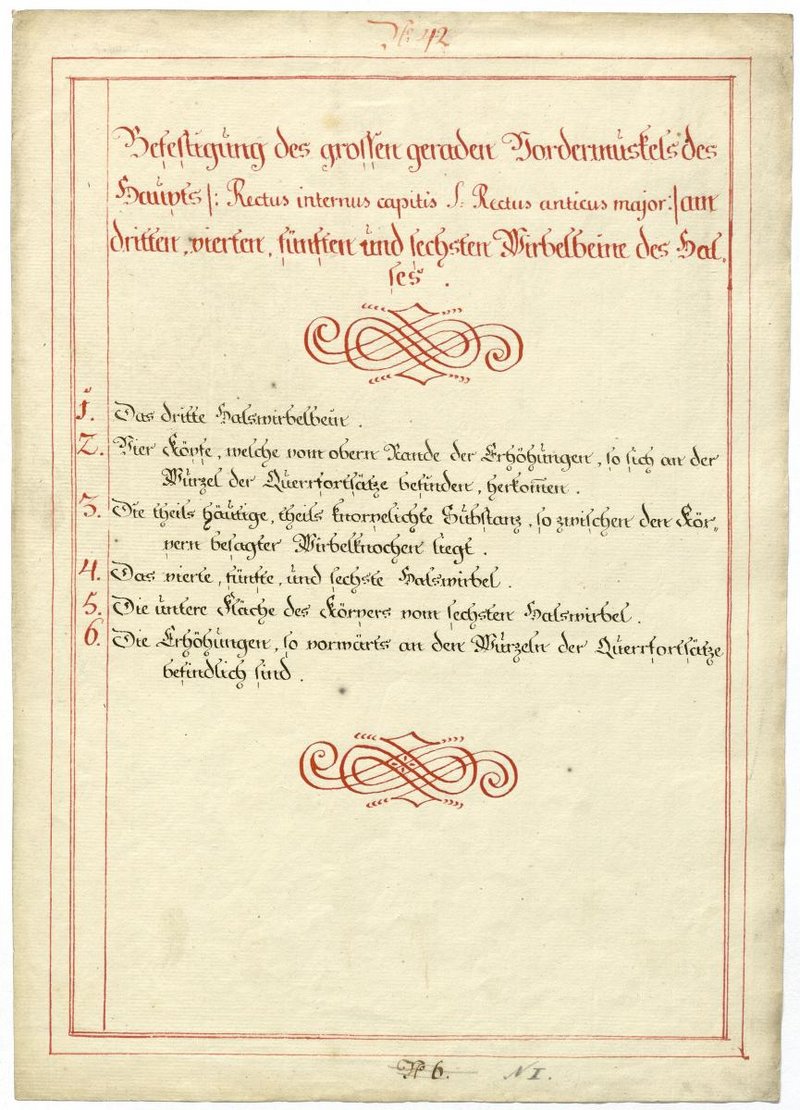 N. 42
Befestigung des grossen geraden Vordermuskels des
Haupts |: Rectus internus capitis S: Rectus anticus major :| am
dritten, vierten, fünften und sechsten Wirbelbeine des Hal-
ses.
1. Das dritte Halswirbelbein.
2. Vier Köpfe, welche vom obern Rande der Erhöhungen, so sich an der
Wurzel der Querrfortsätze befinden, herkom̄en.
3. Die theils häutige, theils knorpelichte Substanz, so zwischen den Kör-
pern besagter Wirbelknochen liegt.
4. Das vierte, fünfte, und sechste Halswirbel.
5. Die untere Fläche des Körpers vom sechsten Halswirbel.
6. Die Erhöhungen, so vorwärts an den Wurzeln der Querrfortsätze
befindlich sind.
N. 6. N I.